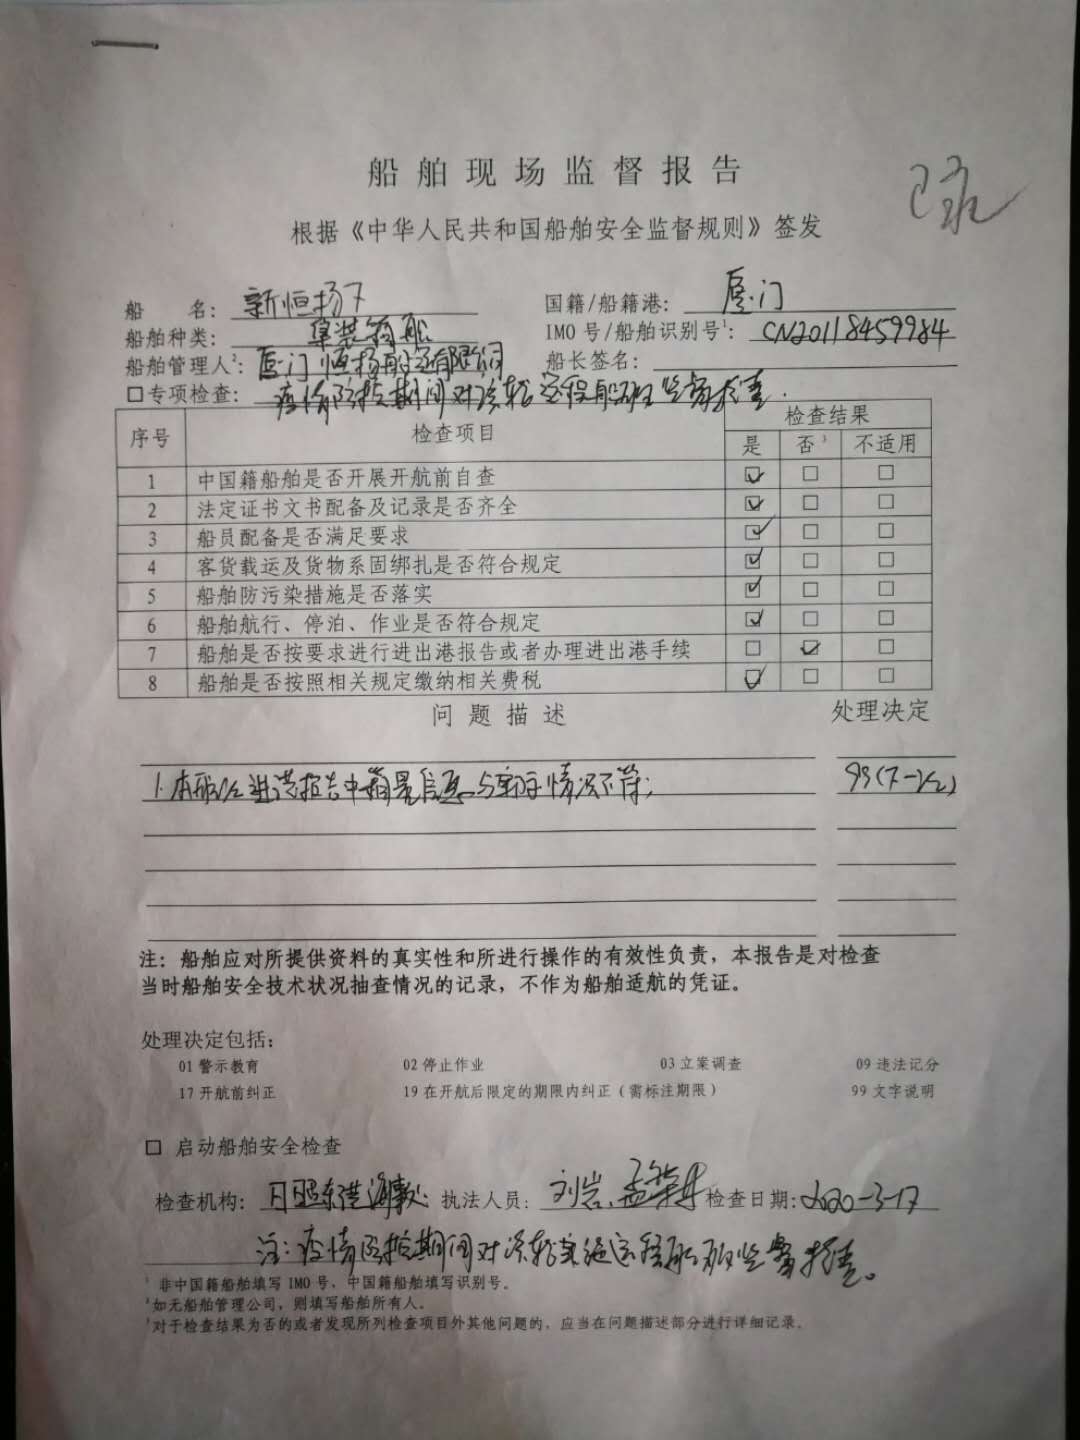 船舶现场监督报告
已录
根据《中华人民共和国船舶安全监督规则》签发
船 名: 新恒扬7 国籍/船籍港: 厦门
船舶种类: 集装箱船 IMO 号/船舶识别号¹: CN20118459984
船舶管理人²: 厦门恒扬船运有限公司 船长签名:
□专项检查: 疫情防控期间对涉 船舶监督检查.
序号 检查项目 检查结果
是 否³ 不适用
1 中国籍船舶是否开展开航前自查 ☑ □ □
2 法定证书文书配备及记录是否齐全 ☑ □ □
3 船员配备是否满足要求 ☑ □ □
4 客货载运及货物系固绑扎是否符合规定 ☑ □ □
5 船舶防污染措施是否落实 ☑ □ □
6 船舶航行、停泊、作业是否符合规定 ☑ □ □
7 船舶是否按要求进行进出港报告或者办理进出港手续 □ ☑ □
8 船舶是否按照相关规定缴纳相关费税 ☑ □ □
问题描述 处理决定
1.本航次进港报告中箱量信息与实际情况不符;
注: 船舶应对所提供资料的真实性和所进行操作的有效性负责，本报告是对检查
当时船舶安全技术状况抽查情况的记录，不作为船舶适航的凭证。
处理决定包括:
01 警示教育 02 停止作业 03 立案调查 09 违法记分
17 开航前纠正 19 在开航后限定的期限内纠正（需标注期限） 99 文字说明
□ 启动船舶安全检查
检查机构: 日照东港海事处 执法人员: 刘岩、孟 检查日期: 2020-3-17
注: 疫情防控期间对涉 船舶监督检查。
¹ 非中国籍船舶填写 IMO 号、中国籍船舶填写识别号。
²如无船舶管理公司，则填写船舶所有人。
³对于检查结果为否的或者发现所列检查项目外其他问题的，应当在问题描述部分进行详细记录。